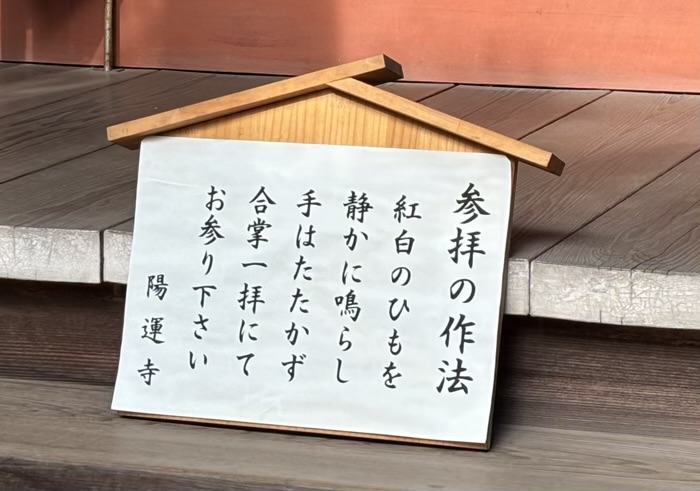 参拝の作法
紅白のひもを
静かに鳴らし
手はたたかず
合掌一拝にて
お参り下さい
陽運寺